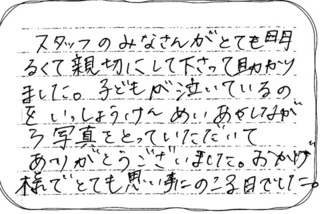 スタッフのみなさんがとても明
るくて親切にして下さって助かり
ました。子どもが泣いているの
をいっしょうけんめいあやしなが
ら写真をとっていただいて
ありがとうございました。おかげ
様でとても思いにのこる日でした。